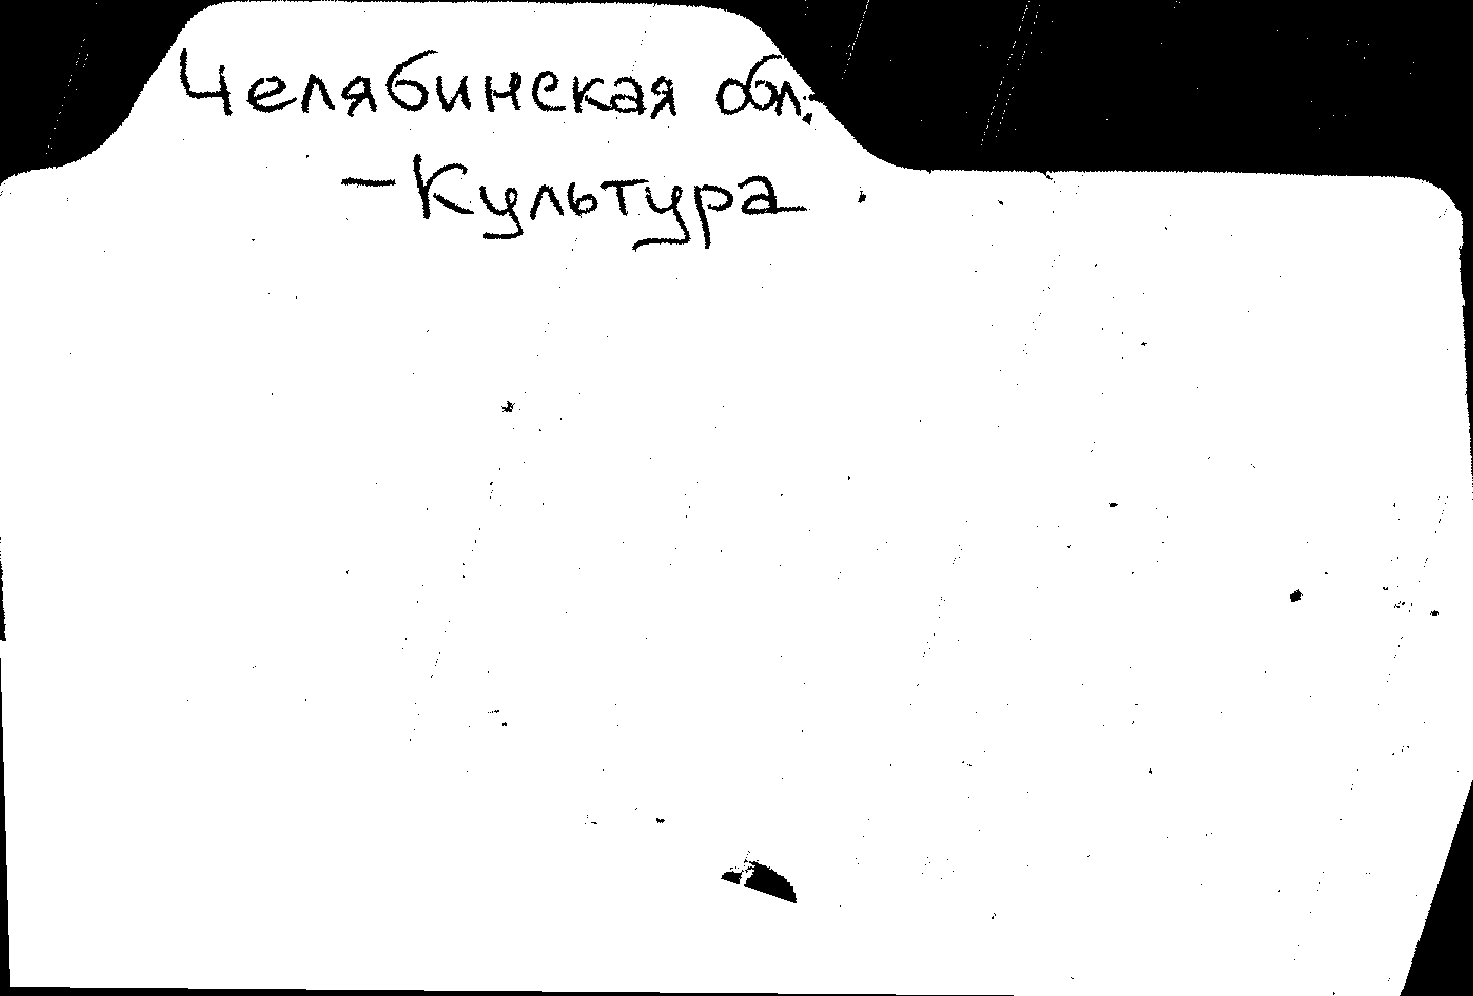 Челябинская обл.
-Культура